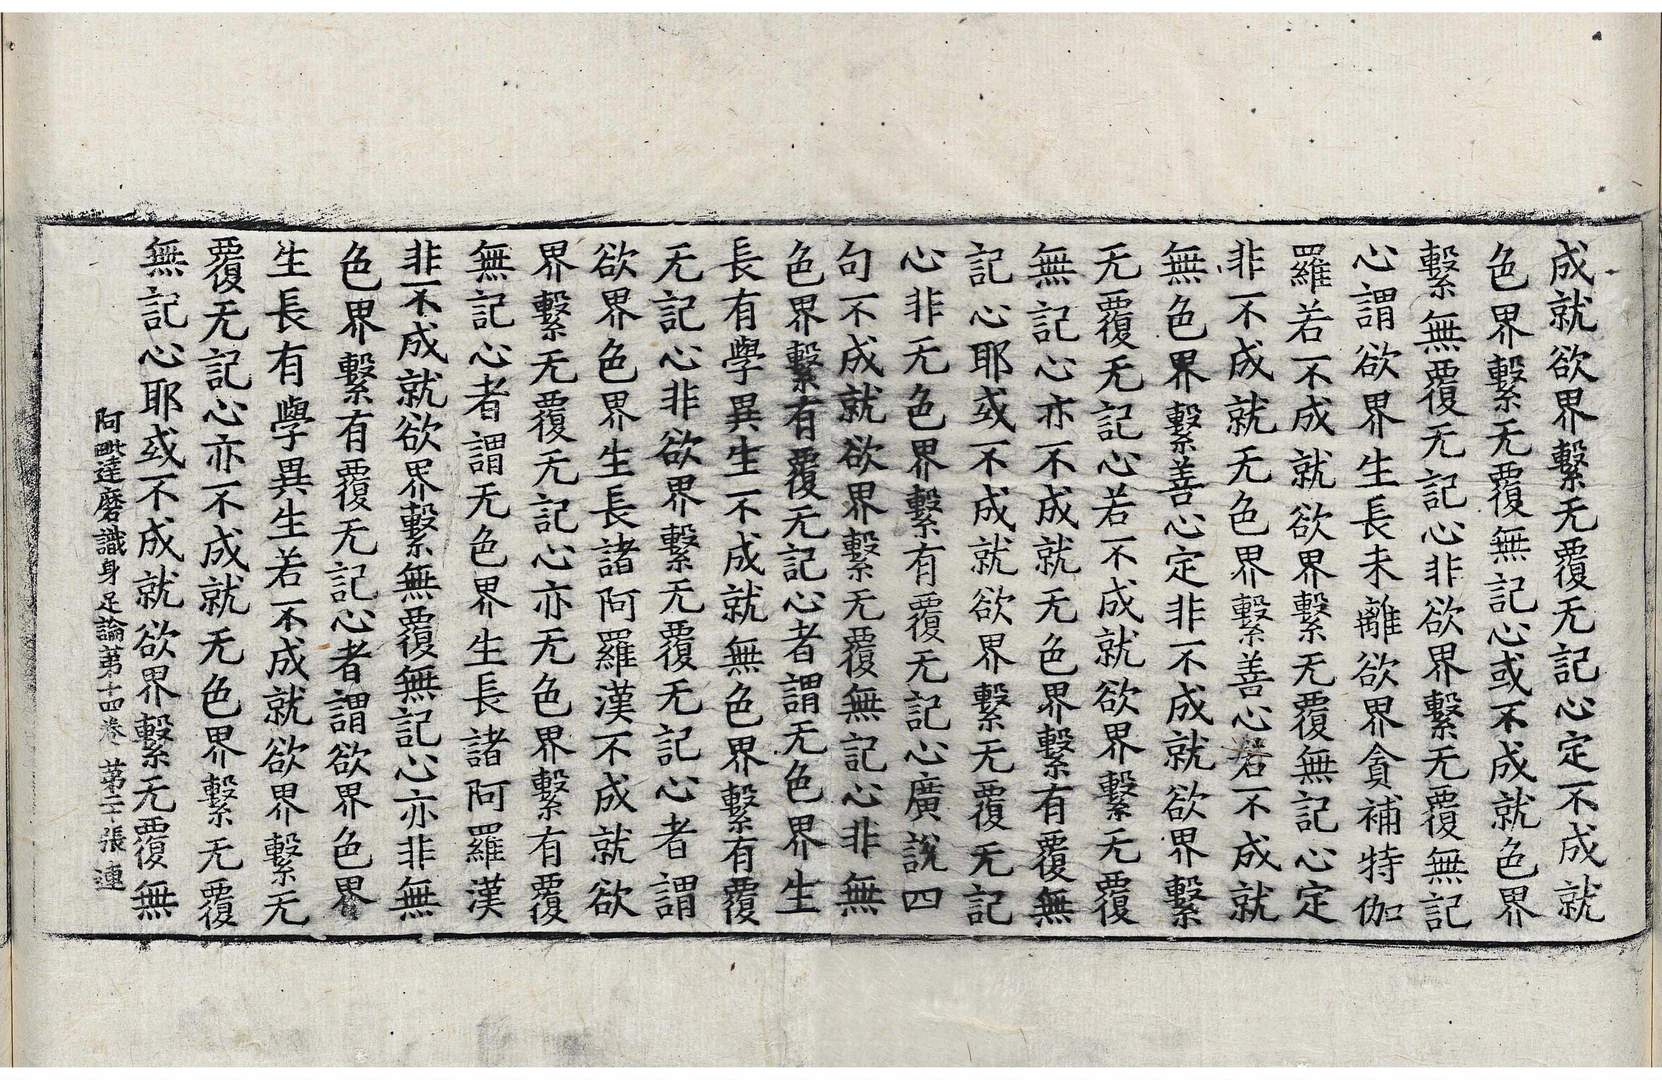 成就欲界繫无覆无記心定不成就
色界繫无覆無記心或不成就色界
繫無覆无記心非欲界繫无覆無記
心謂欲界生長未離欲界貪補特伽
羅若不成就欲界繫无覆無記心定
非不成就无色界繫善心若不成就
無色界繫善心定非不成就欲界繫
无覆无記心若不成就欲界繫无覆
無記心亦不成就无色界繫有覆無
記心耶或不成就欲界繫无覆无記
心非无色界繫有覆无記心廣說四
句不成就欲界繫无覆無記心非無
色界繫有覆无記心者謂无色界生
長有學異生不成就無色界繫有覆
无記心非欲界繫无覆无記心者謂
欲界色界生長諸阿羅漢不成就欲
界繫无覆无記心亦无色界繫有覆
無記心者謂无色界生長諸阿羅漢
非不成就欲界繫無覆無記心亦非無
色界繫有覆无記心者謂欲界色界
生長有學異生若不成就欲界繫无
覆无記心亦不成就无色界繫无覆
無記心耶或不成就欲界繫无覆無
阿毗達磨識身足論苐十四卷 苐二十張 連